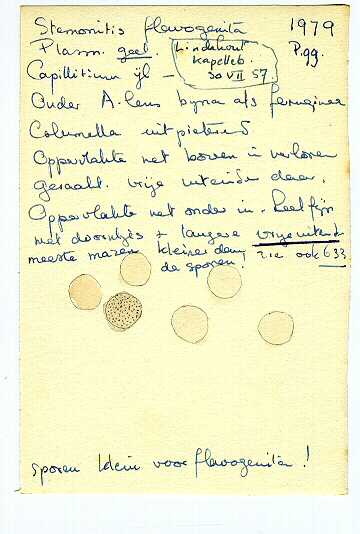 Stemonitis flavogenita 1979
Plasm. geel. Lindehout P.99.
Kapelleb
30 VII 57.
Capillitium ijl —
Onder A. lens bijna als ferruginea
Columella uitpieterend
Oppervlakte net boven in verloren
geraakt. Vrije uiteinden daar.
Oppervlakte net onder in. Heel fijn
met doorntjes + langere vrije uiteind
meeste mazen kleiner dan zie ook 633
de sporen!
sporen klein voor flavogenita!